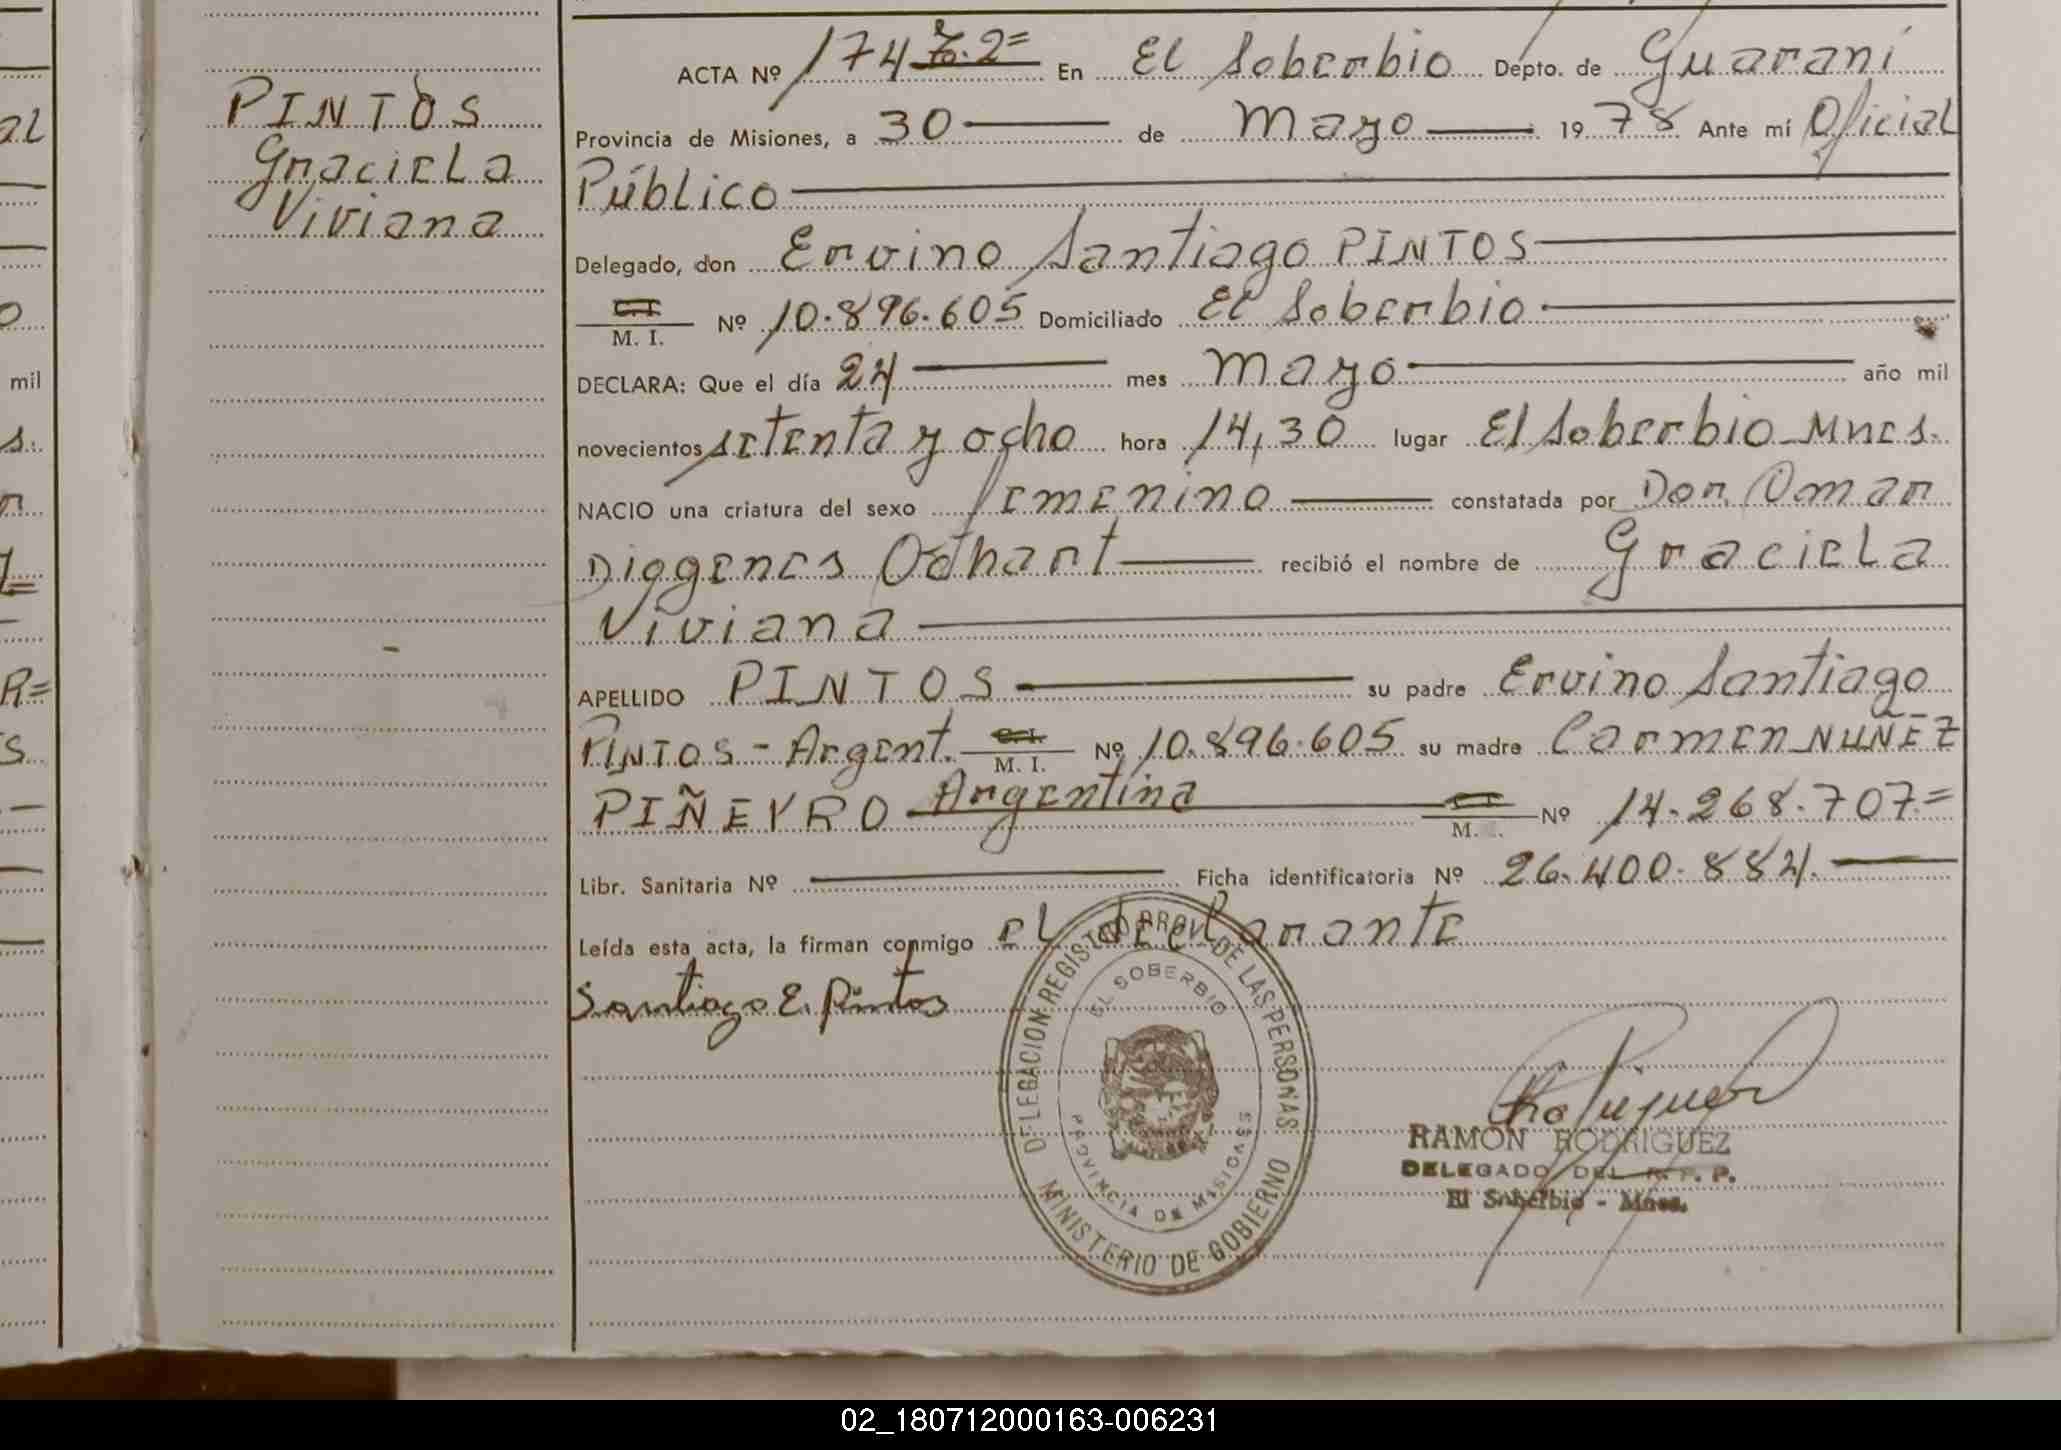 PINTOS
Graciela
Viviana
ACTA Nº 174 En El Soberbio Depto. de Guaraní
Provincia de Misiones, a 30 de Mayo 1978 Ante mí Oficial
Público
Delegado, don Ervino Santiago PINTOS
C.I.
M. I. Nº 10.896.605 Domiciliado El Soberbio
DECLARA: Que el día 24 mes Mayo año mil
novecientos setenta y ocho hora 14,30 lugar El Soberbio-Mnes.
NACIO una criatura del sexo femenino constatada por Don Omar
Diggenes Odhart recibió el nombre de Graciela
Viviana
APELLIDO PINTOS su padre Ervino Santiago
PINTOS - Argent. C.I. M. I. Nº 10.896.605 su madre Carmen NUÑEZ
PIÑEYRO Argentina C.I. M. Nº 14.268.707=
Libr. Sanitaria Nº Ficha identificatoria Nº 26.400.884.
Leída esta acta, la firman conmigo el declarante
Santiago E. Pintos
DELEGACION REGISTRO PROV. DE LAS PERSONAS
EL SOBERBIO
PROVINCIA DE MISIONES
MINISTERIO DE GOBIERNO
RAMON RODRIGUEZ
DELEGADO DEL R. P. P.
El Soberbio - Mnes.
mil
02_180712000163-006231